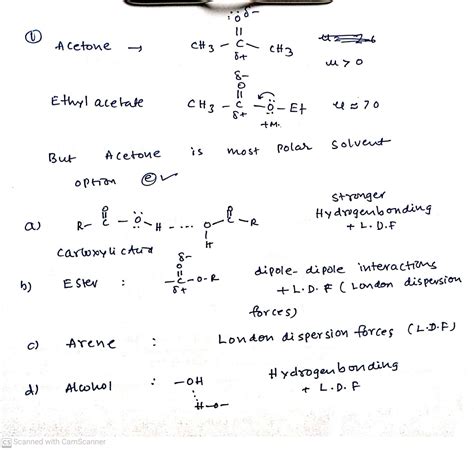 ① Acetone → CH3 - C - CH3
:O: δ-
δ+
μ > 0
Ethyl acetate CH3 - C - Ö - Et
δ-
O
δ+
+M.
But Acetone is most polar solvent
option ⓔ ✓
a) R - C - Ö - H ---- O - C - R
O
H
Carboxylic Acid
stronger
Hydrogen bonding
+ L.D.F
b) Ester : - C - O - R
δ-
O
δ+
dipole-dipole interactions
+ L.D.F (London dispersion
forces)
c) Arene : London dispersion forces (L.D.F)
d) Alcohol : - OH
H-O-
Hydrogen bonding
+ L.D.F
CS Scanned with CamScanner